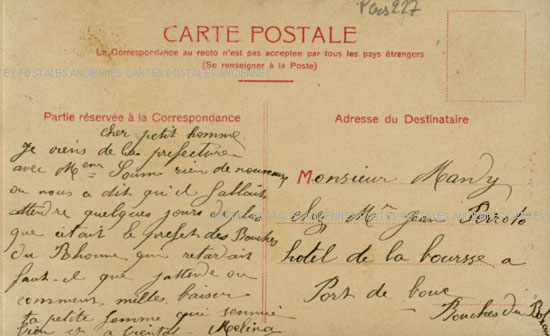 Pars 227
CARTE POSTALE
La Correspondance au recto n'est pas acceptée par tous les pays étrangers
(Se renseigner à la Poste)
CARTES POSTALES ANCIENNES CARTES POSTALES ANCIENNES
Partie réservée à la Correspondance
Adresse du Destinataire
cher petit homme
Je viens de la prefecture
avec Mr Soumi rien de nouveau
on nous a dit qu'il fallait
attendre quelques jours de plus
que c'était le prefet des Bouches
du Rhone qui retardait
faut-il que j'attende ou
comment milles baiser
ta petite femme qui
bien et a bientot Melina
Monsieur Mandy
chez Mr Jean
hotel de la boursse a
Port de bouc
Bouches du